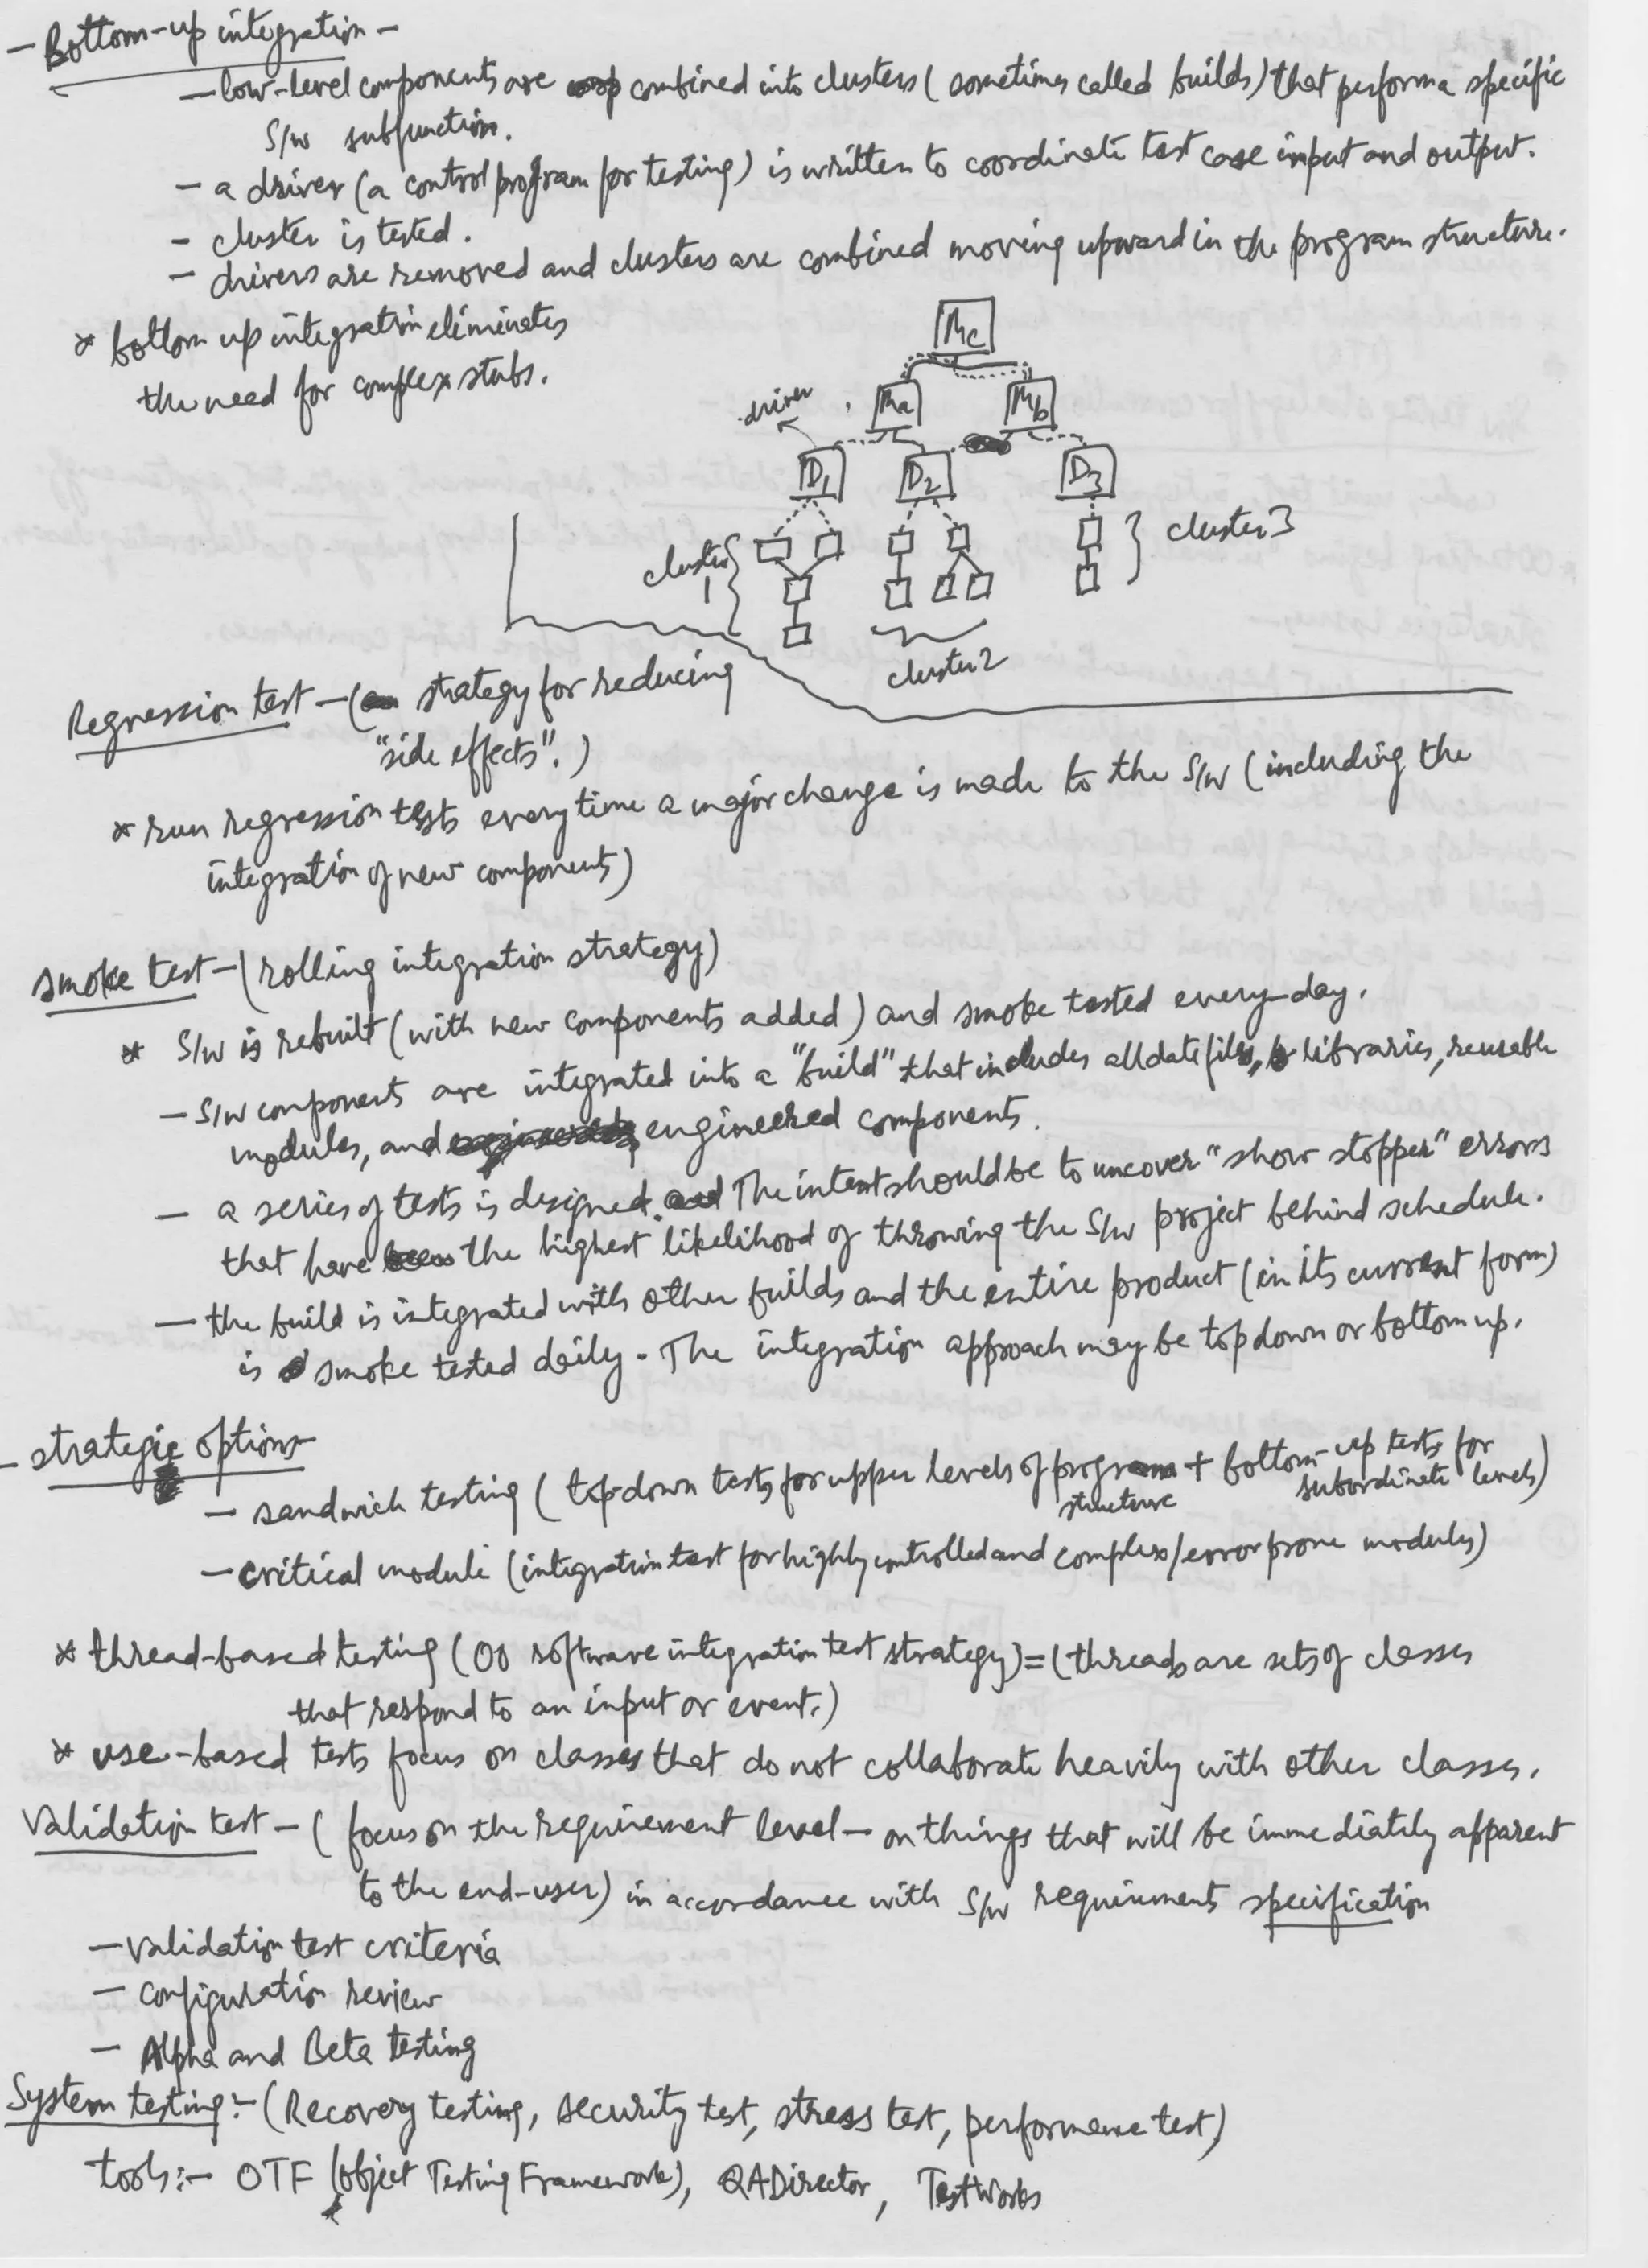 - Bottom-up integration -
- low-level components are combined into clusters (sometimes called builds) that perform a specific
S/W subfunction.
- a driver (a control program for testing) is written to coordinate test case input and output.
- cluster is tested.
- drivers are removed and clusters are combined moving upward in the program structure.
* bottom up integration eliminates
the need for complex stubs.
Mc
driver
Ma Mb
D1 D2 D3
cluster 1
cluster 3
cluster 2
Regression test - ( strategy for reducing
"side effects".)
* run regression tests every time a major change is made to the S/W (including the
integration of new components)
smoke test - (rolling integration strategy)
* S/W is rebuilt (with new components added) and smoke tested every-day.
- S/W components are integrated into a "build" that includes all data files, libraries, reusable
modules, and engineered components.
- a series of tests is designed. The intent should be to uncover "show stopper" errors
that have the highest likelihood of throwing the S/W project behind schedule.
- the build is integrated with other builds and the entire product (in its current form)
is smoke tested daily. The integration approach may be top down or bottom up.
- strategic options
- sandwich testing (top down tests for upper levels of program structure + bottom-up tests for subordinate levels)
- critical module (integration test for highly controlled and complex/error prone modules)
* thread-based testing (OO software integration test strategy) = (threads are sets of classes
that respond to an input or event.)
* use-based tests focus on classes that do not collaborate heavily with other classes.
Validation test - (focus on the requirement level - on things that will be immediately apparent
to the end-user) in accordance with S/W requirments specification
- validation test criteria
- configuration review
- Alpha and Beta testing
System testing:- (Recovery testing, security test, stress test, performance test)
tools:- OTF (object Testing Framework), QADirector, TestWorks